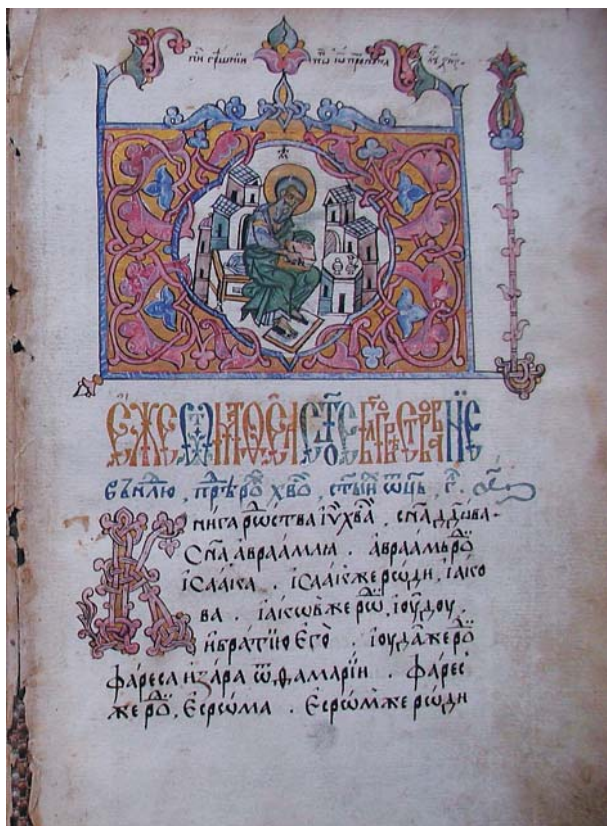 еже ѿ матѳеа ст҃ое бл҃говѣствованїе
Кнїга рѡⷭ҇ства і҆ѵ҃ хв҃а . сн҃а дд҃ва .
сн҃а авраамлꙗ . авраамъ роⷣ
ісаака . ісаакже рѡди , іако
ва . іакѡвже рѡⷣ , іоудоу ,
и братїю его . іоудаже роⷣ
фареса и зара ѿ ѳамарїи . фарес
же роⷣ , есрѡма . есрѡмже рѡди